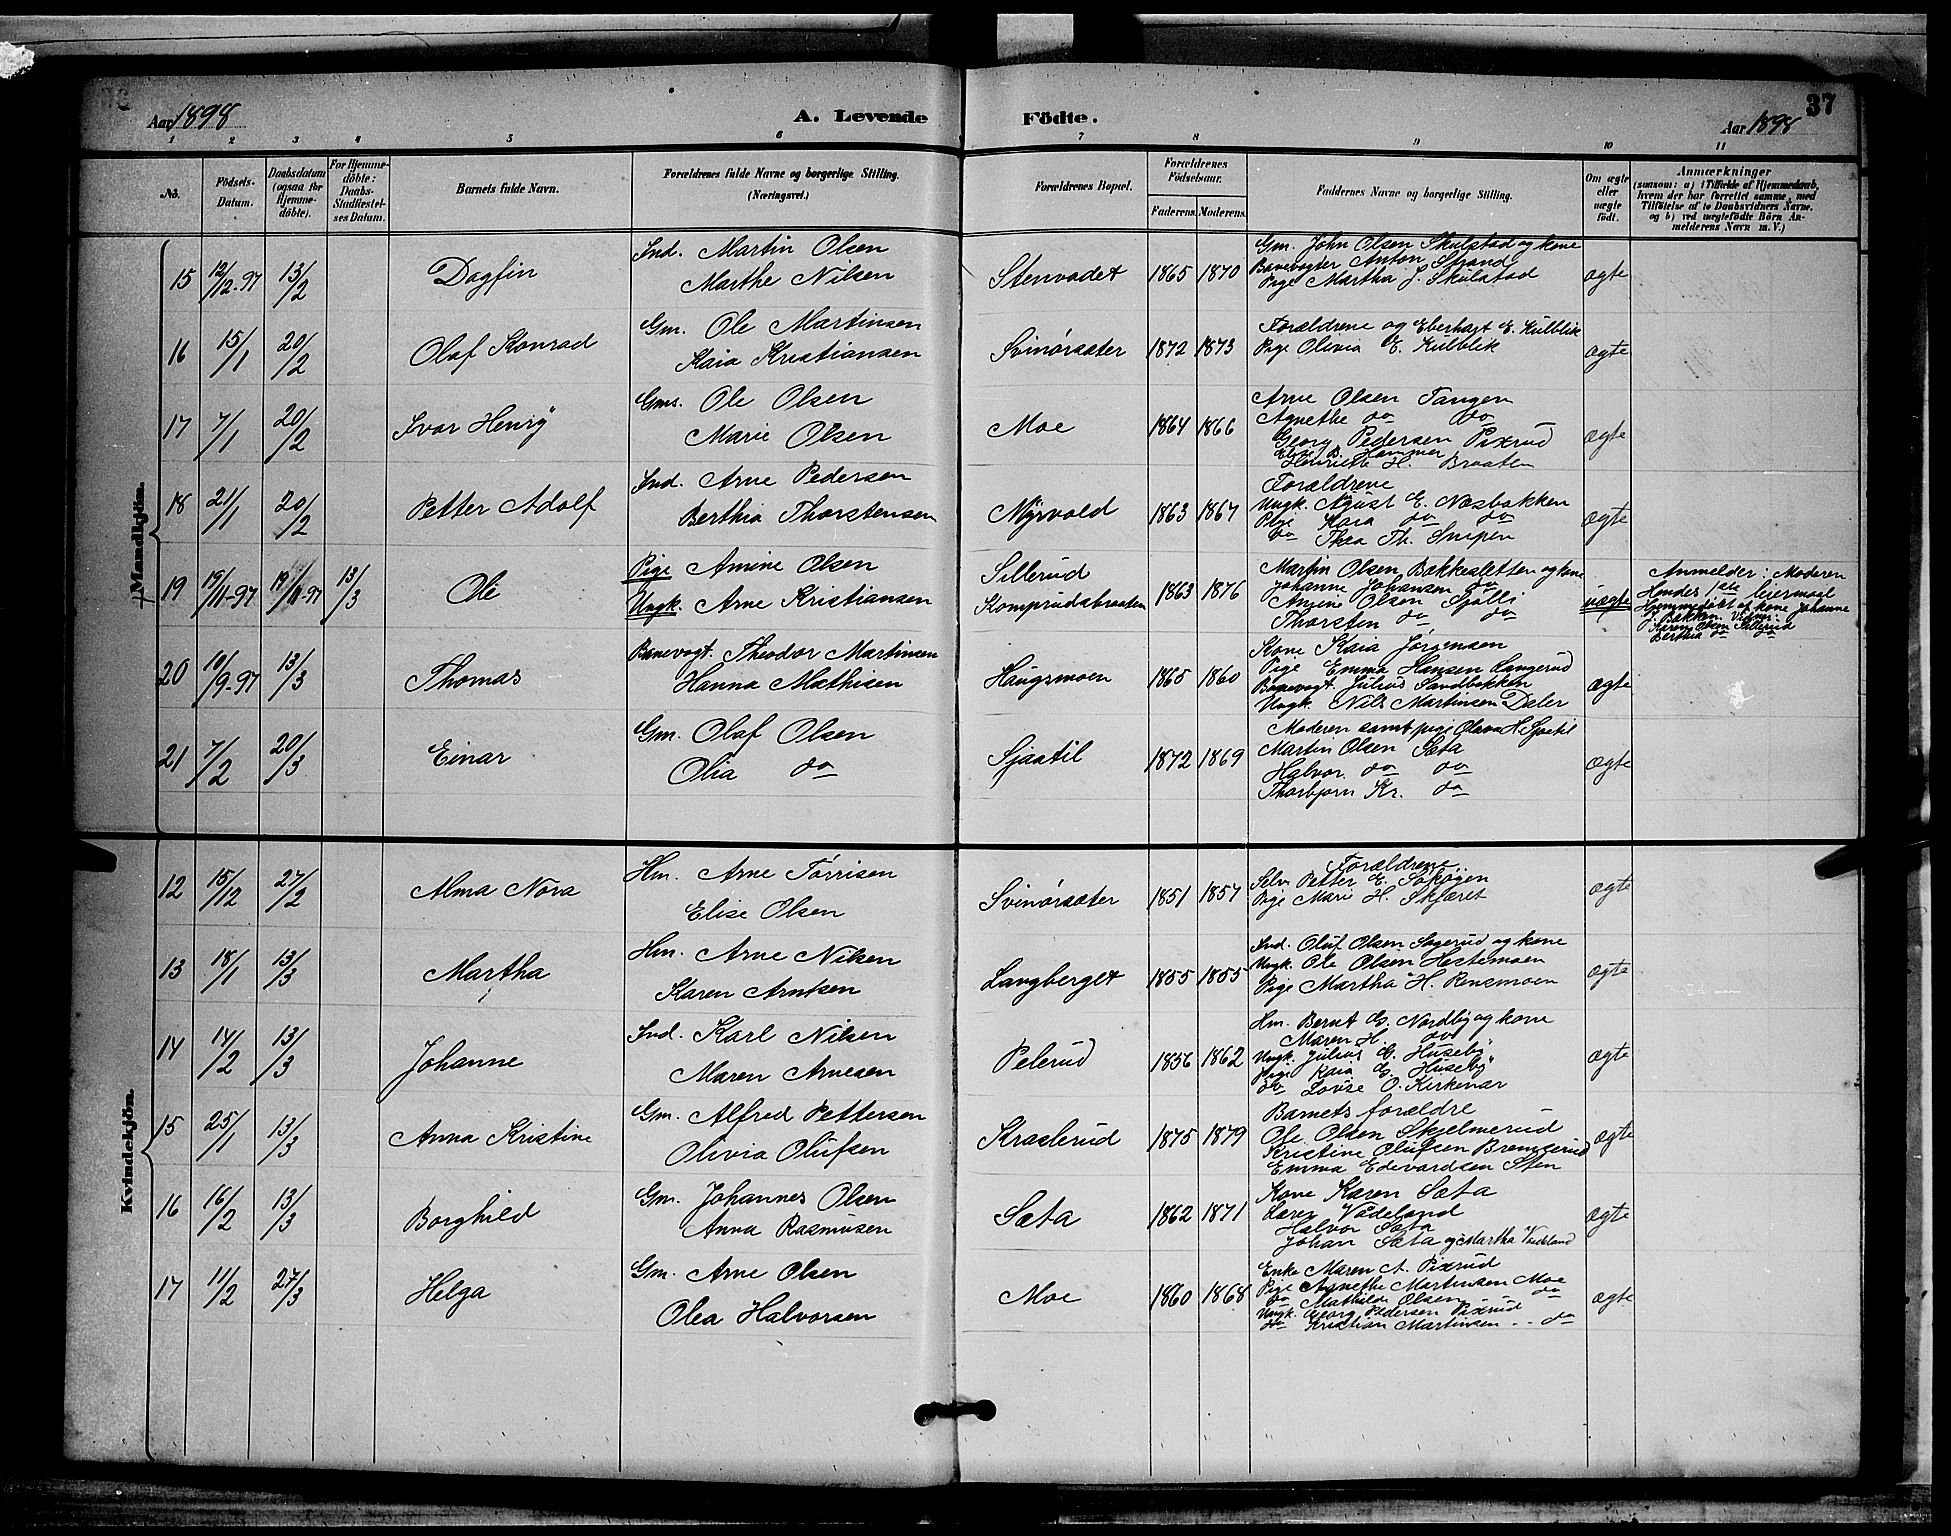 Aar 1898
A. Levende Födte.
Aar 1898
37
1 2 3 4 5 6 7 8 9 10 11
No.
Födsels-Datum.
Daabsdatum (ogsaa for Hjemme-döbte).
For Hjemme-döbte: Daabs-Stadfæstel-ses Datum.
Barnets fulde Navn.
Forældrenes fulde Navne og borgerlige Stilling. (Næringsvei.)
Forældrenes Bopæl.
Forældrenes Födselsaar.
Faderens. Moderens.
Faddernes Navne og borgerlige Stilling.
Om ægte eller uægte födt.
Anmærkninger
(saasom: a) i Tilfælde af Hjemmedaab,
hvem der har forrettet samme, med
Tilföielse af to Daabsvidners Navne,
og b) ved uægtefödte Börn An-
melderens Navn m. V.)
Mandkjön.
15 12/12-97 13/2 Dagfin
Ind. Martin Olsen
Marthe Nilsen
Stenvadet 1865 1870
Gm. John Olsen Skulstad og kone
Banevogter Anton Strand
Pige Martha J. Skulstad
ægte
16 15/1 20/2 Olaf Konrad
Gm. Ole Martinsen
Kaia Kristiansen
Svinørsæter 1872 1873
Forældrene og Eberhart E. Kulblik
Pige Olivia E. Kulblik
ægte
17 7/1 20/2 Ivar Henry
Gms. Ole Olsen
Marie Olsen
Moe 1864 1866
Arne Olsen Tangen
Agnethe do do
Georg Pedersen Pixrud
Elise B. Hammer
Henriette H. Braaten
ægte
18 21/1 20/2 Petter Adolf
Ind. Arne Pedersen
Berthia Thorstensen
Myrvold 1863 1867
Forældrene
Ungk. August E. Næsbakken
Pige Kaia do do
do Thea Th. Snipen
ægte
19 19/11-97 19/11-97 13/3 Ole
Pige Amine Olsen
Ungk. Arne Kristiansen
Sillerud
Komprudsbraaten 1863 1876
Martin Olsen Bakkesletten og kone
Johanne Johansen do
Amine Olsen Sjølli
Thorsten do do
uægte
Anmelder: Moderen
Hendes 1ste leiermaal
Hjemmedøbt af kone Johanne
J. Bakken. Vidner:
Karen Olsen Sillerud
Berthia do do
20 10/9-97 13/3 Thomas
Banevogt. Theodor Martinsen
Hanna Mathisen
Haugsmoen 1865 1860
Kone Kaia Jørgensen
Pige Emma Hansen Langerud
Banevogt Julius Sandbakken
Ungk. Nils Martinsen Daler
ægte
21 7/2 20/3 Einar
Gm. Olaf Olsen
Olia do
Sjaatil 1872 1869
Moderen samt pige Olava H. Sjaatil
Martin Olsen Sæta
Halvor do do
Thorbjørn Kr. do
ægte
Kvindekjön.
12 15/12 27/2 Alma Nora
Hm. Arne Tørrisen
Elise Olsen
Svinørsæter 1851 1857
Forældrene
Selv. Petter E.
Pige Mari H. Skjæret
ægte
13 18/1 13/3 Martha
Hm. Arne Nilsen
Karen Arntsen
Langberget 1855 1855
Ind. Oluf Olsen Sagerud og kone
Ungk. Ole Olsen Hestemoen
Pige Martha H. Rensmoen
ægte
14 14/2 13/3 Johanne
Ind. Karl Nilsen
Maren Arnesen
Pelerud 1856 1862
Hm. Bernt G. Nordby og kone
Maren H. do
Ungk. Julius G. Huseby
Pige Kaia G. Huseby
do Lovise O. Kirkenær
ægte
15 25/1 13/3 Anna Kristine
Gm. Alfred Pettersen
Olivia Olufsen
Kraslerud 1875 1879
Barnets forældre
Ole Olsen Skjelmerud
Kristine Olufsen Bremserud
Emma Edevardsen Sten
ægte
16 16/2 13/3 Borghild
Gm. Johannes Olsen
Anna Rasmusen
Sæta 1862 1871
Kone Karen Sæta
Lærer Vadeland
Halvor Sæta
Johan Sæta og Martha Vadeland
ægte
17 11/2 27/3 Helga
Gm. Arne Olsen
Olea Halvorsen
Moe 1860 1868
Enke Maren A. Pixrud
Pige Agnethe Martinsen Moe
do Mathilde Olsen do
Ungk. Georg Pedersen Pixrud
do Kristian Martinsen do
ægte